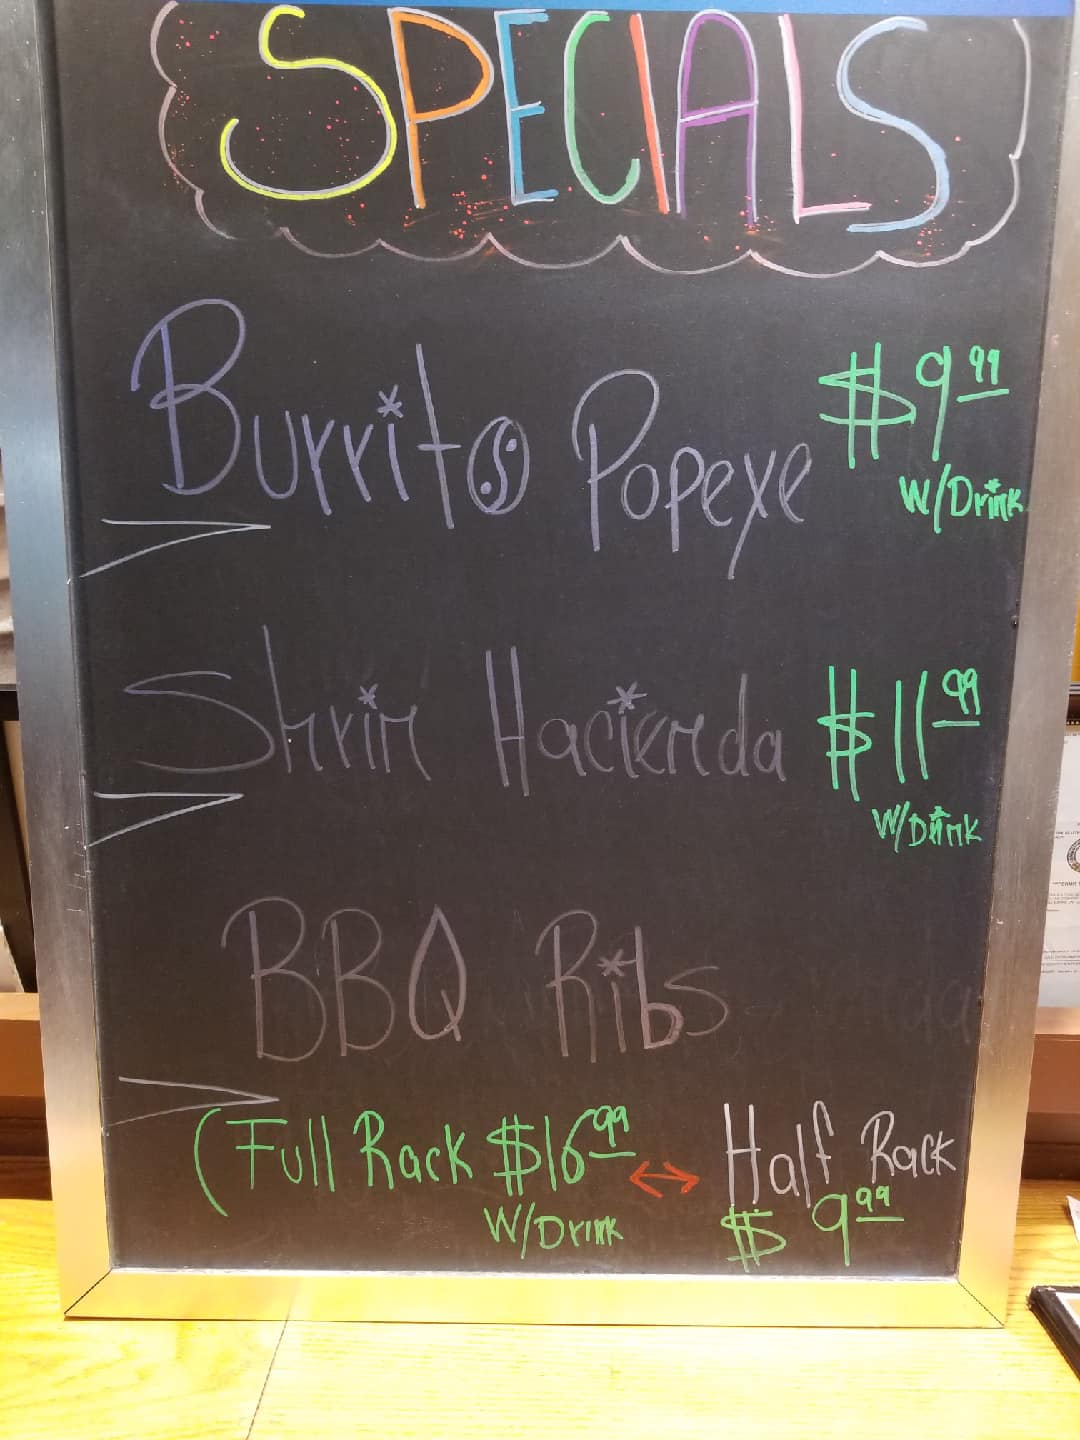 SPECIALS
Burrito Popeye $9.99
W/Drink
Shrim Hacienda $11.99
W/Drink
BBQ Ribs
(Full Rack $16.99 ↔ Half Rack
W/Drink $9.99